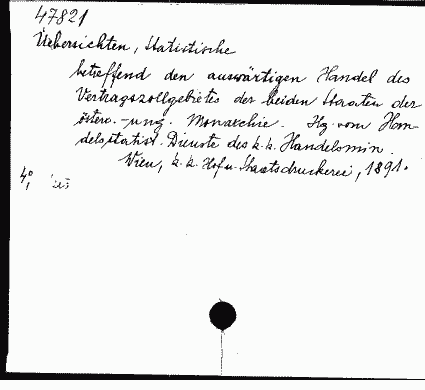 47821
Uebersichten, Statistische
betreffend den auswärtigen Handel des
Vertragszollgebietes der beiden Staaten der
österr.-ung. Monarchie. Hg. vom Han-
delsstatist. Dienste des k.k. Handelsmin.
Wien, k.k. Hof u. Staatsdruckerei, 1891.
4°